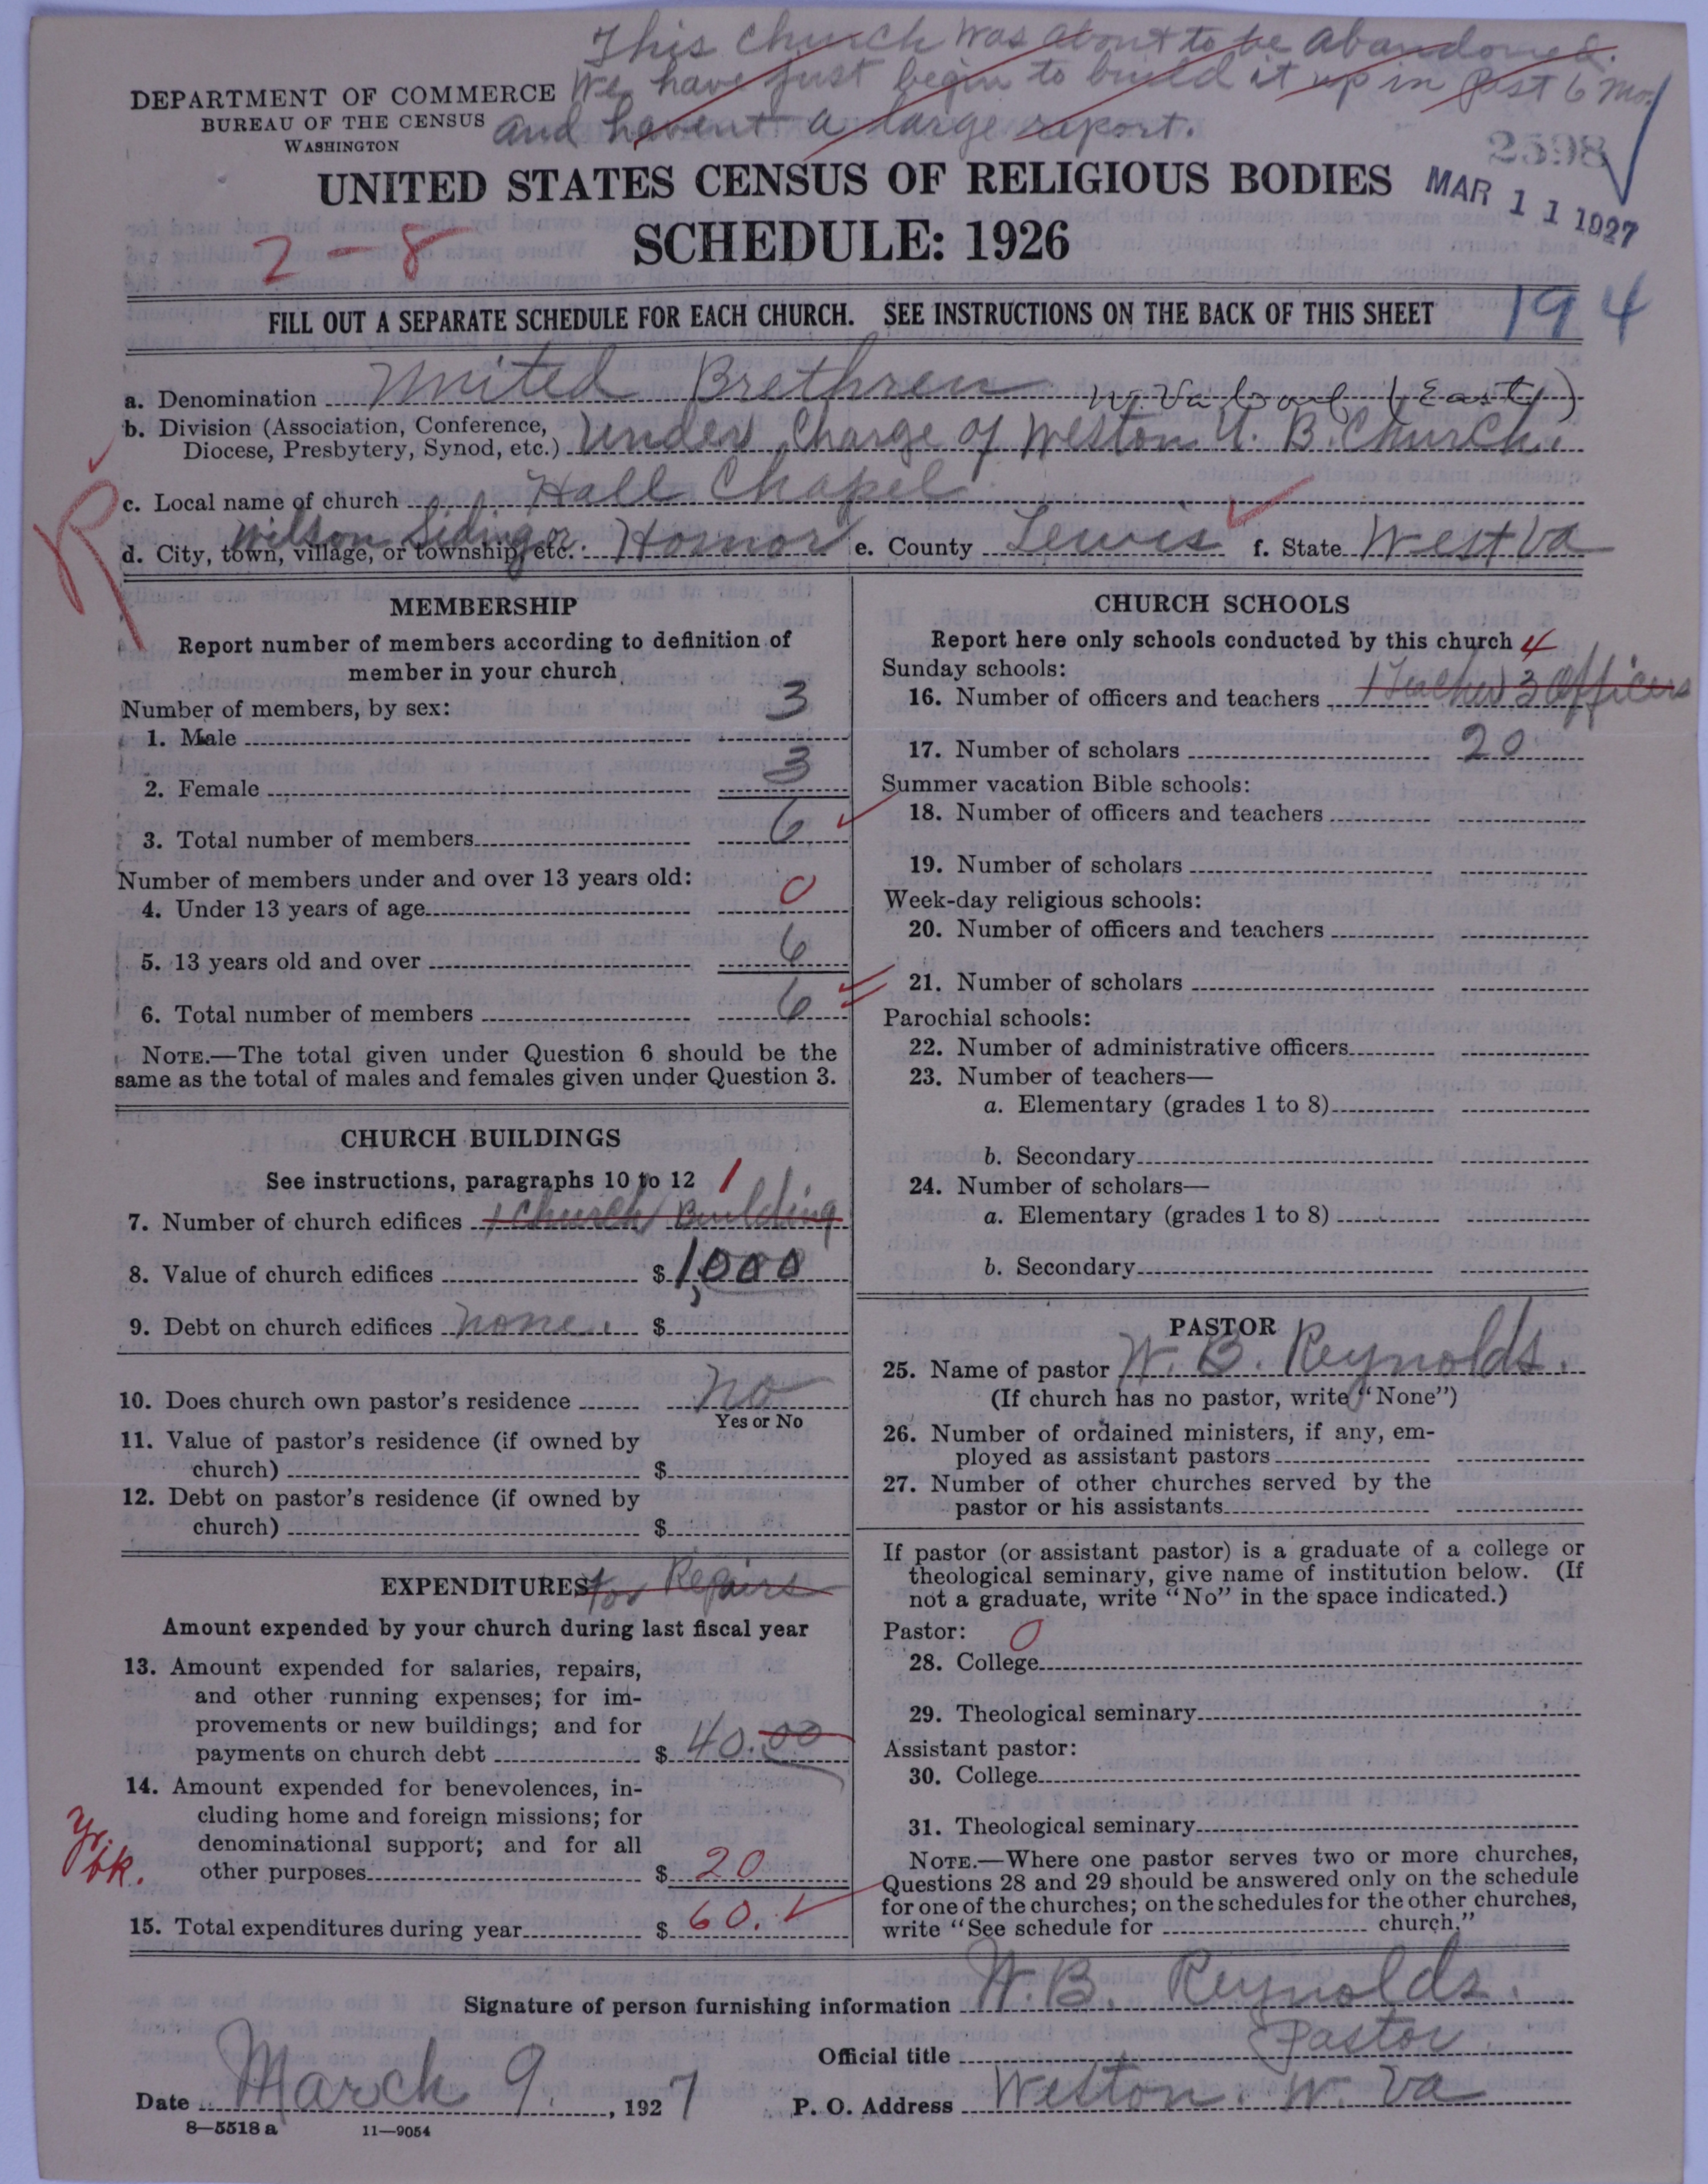 This church was about to be abandoned.
We have just begin to build it up in Past 6 mo.
and havent a large report.
DEPARTMENT OF COMMERCE
BUREAU OF THE CENSUS
WASHINGTON
2598
UNITED STATES CENSUS OF RELIGIOUS BODIES
MAR 11 1927
2-8
SCHEDULE: 1926
FILL OUT A SEPARATE SCHEDULE FOR EACH CHURCH. SEE INSTRUCTIONS ON THE BACK OF THIS SHEET
194
a. Denomination United Brethren W. Va Conf (East)
b. Division (Association, Conference,
Diocese, Presbytery, Synod, etc.) Under Charge of Weston U. B. Church.
c. Local name of church Hall Chapel
R
Wilson Siding or
d. City, town, village, or township, etc. Hornor e. County Lewis f. State West Va
MEMBERSHIP
Report number of members according to definition of
member in your church
Number of members, by sex:
1. Male 3
2. Female 3
3. Total number of members 6
Number of members under and over 13 years old:
4. Under 13 years of age 0
5. 13 years old and over 6
6. Total number of members 6
NOTE.—The total given under Question 6 should be the
same as the total of males and females given under Question 3.
CHURCH BUILDINGS
See instructions, paragraphs 10 to 12 1
7. Number of church edifices 1 Church Building
8. Value of church edifices $ 1,000
9. Debt on church edifices none. $
10. Does church own pastor's residence no
Yes or No
11. Value of pastor's residence (if owned by
church) $
12. Debt on pastor's residence (if owned by
church) $
EXPENDITURES for Repairs
Amount expended by your church during last fiscal year
13. Amount expended for salaries, repairs,
and other running expenses; for im-
provements or new buildings; and for
payments on church debt $ 40.00
14. Amount expended for benevolences, in-
cluding home and foreign missions; for
denominational support; and for all
other purposes $ 20
Yr. bk.
15. Total expenditures during year $ 60.
CHURCH SCHOOLS
Report here only schools conducted by this church 4
Sunday schools:
16. Number of officers and teachers 1 Teacher 3 Officers
17. Number of scholars 20
Summer vacation Bible schools:
18. Number of officers and teachers
19. Number of scholars
Week-day religious schools:
20. Number of officers and teachers
21. Number of scholars
Parochial schools:
22. Number of administrative officers
23. Number of teachers—
a. Elementary (grades 1 to 8)
b. Secondary
24. Number of scholars—
a. Elementary (grades 1 to 8)
b. Secondary
PASTOR
25. Name of pastor W. B. Reynolds.
(If church has no pastor, write "None")
26. Number of ordained ministers, if any, em-
ployed as assistant pastors
27. Number of other churches served by the
pastor or his assistants
If pastor (or assistant pastor) is a graduate of a college or
theological seminary, give name of institution below. (If
not a graduate, write "No" in the space indicated.)
Pastor: 0
28. College
29. Theological seminary
Assistant pastor:
30. College
31. Theological seminary
NOTE.—Where one pastor serves two or more churches,
Questions 28 and 29 should be answered only on the schedule
for one of the churches; on the schedules for the other churches,
write "See schedule for church."
Signature of person furnishing information W. B. Reynolds.
Official title Pastor
Date March 9, 1927 P. O. Address Weston. W. Va
8—5518 a 11—9054